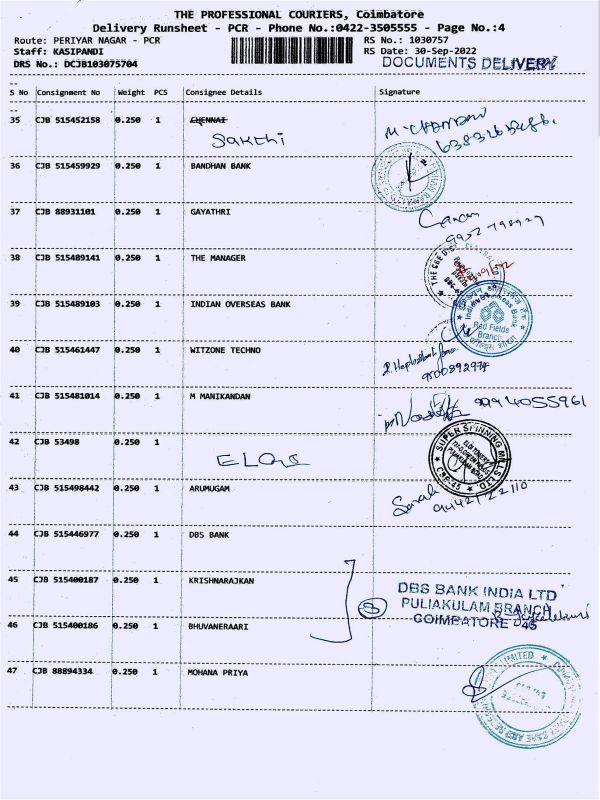 THE PROFESSIONAL COURIERS, Coimbatore
Delivery Runsheet - PCR - Phone No.:0422-3505555 - Page No.:4
Route: PERIYAR NAGAR - PCR RS No.: 1030757
Staff: KASIPANDI RS Date: 30-Sep-2022
DRS No.: DCJB103075704 DOCUMENTS DELIVERY
S No Consignment No Weight PCS Consignee Details Signature
35 CJB 515452158 0.250 1 CHENNAI
Sakthi
36 CJB 515459929 0.250 1 BANDHAN BANK
37 CJB 88931101 0.250 1 GAYATHRI
38 CJB 515489141 0.250 1 THE MANAGER
39 CJB 515489103 0.250 1 INDIAN OVERSEAS BANK
Red Fields
Branch
40 CJB 515461447 0.250 1 WITZONE TECHNO
41 CJB 515481014 0.250 1 M MANIKANDAN
9994055961
42 CJB 53498 0.250 1
SUPER SPINNING MILLS LTD.
CBE-45
43 CJB 515498442 0.250 1 ARUMUGAM
44 CJB 515446977 0.250 1 DBS BANK
45 CJB 515400187 0.250 1 KRISHNARAJKAN
DBS BANK INDIA LTD
PULIAKULAM BRANCH
COIMBATORE 45
46 CJB 515400186 0.250 1 BHUVANERAARI
47 CJB 88894334 0.250 1 MOHANA PRIYA